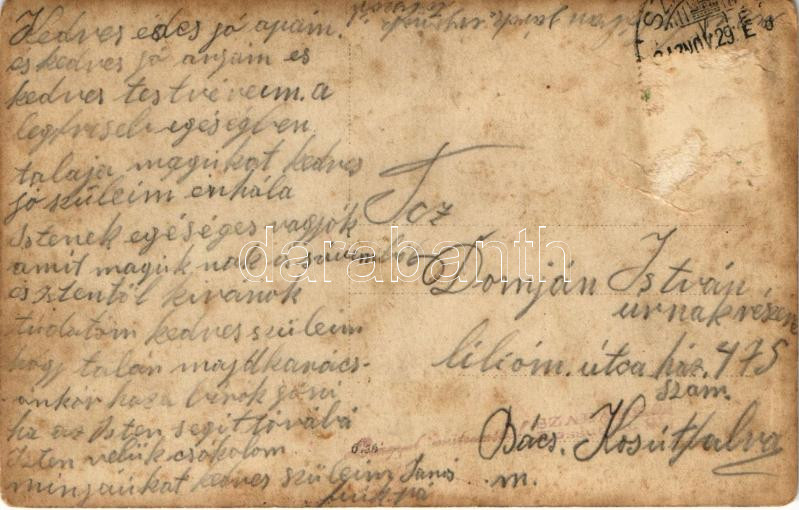 Kedves édes jó apám.
és kedves jó anyám és
kedves testvéreim. a
legfriseb egéségben
talaja magukat kedves
jó szüleim én hála
Istenek egéséges vagyok
amit maguk nak is
és Istentől kivánok
tudatom kedves szüleim
hogy talán majdkarács-
onkór haza birok jöni
ha az Isten segit tóvábá
Isten velük csókolom
minyáukat kedves szüleim János
NOV 29
Toz
Domján István
urnak részére
liliom. útca ház. 475
szám.
Bács. Kosúthfalva
m.
6.36
darabanth